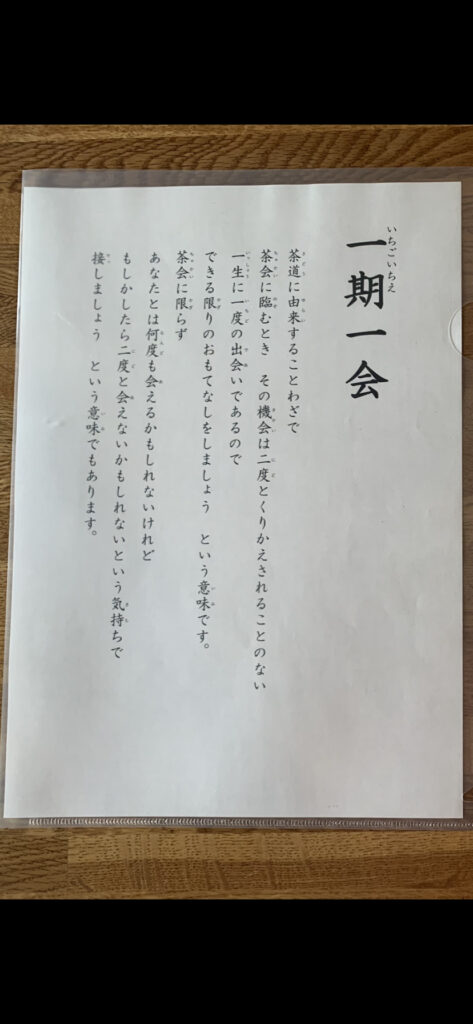 一期一会
いちごいちえ
茶道に由来することわざで
茶会に臨むとき　その機会は二度とくりかえされることのない
一生に一度の出会いであるので
できる限りのおもてなしをしましょう　という意味です。
茶会に限らず
あなたとは何度も会えるかもしれないけれど
もしかしたら二度と会えないかもしれないという気持ちで
接しましょう　という意味でもあります。